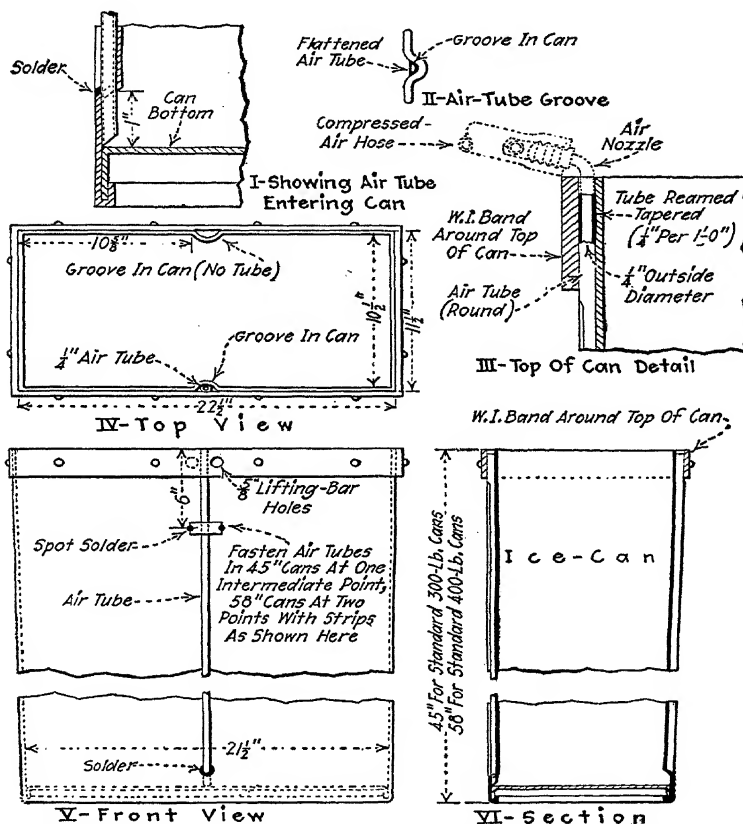 Solder
Can
Bottom
1"
I-Showing Air Tube
Entering Can
Flattened
Air Tube
Groove In Can
II-Air-Tube Groove
Compressed-
Air Hose
Air
Nozzle
W.I. Band
Around Top
Of Can
Air Tube
(Round)
Tube Reamed
Tapered
(¼" Per 1'-0")
¼" Outside
Diameter
III-Top Of Can Detail
10⅝"
Groove In Can (No Tube)
10½"
11½"
Groove In Can
¼" Air Tube
22½"
IV-Top View
6"
⅝" Lifting-Bar
Holes
Spot Solder
Air Tube
Fasten Air Tubes
In 45" Cans At One
Intermediate Point,
58" Cans At Two
Points With Strips
As Shown Here
21½"
Solder
V-Front View
W.I. Band Around Top Of Can
45" For Standard 300-Lb. Cans
58" For Standard 400-Lb. Cans
Ice-Can
VI-Section